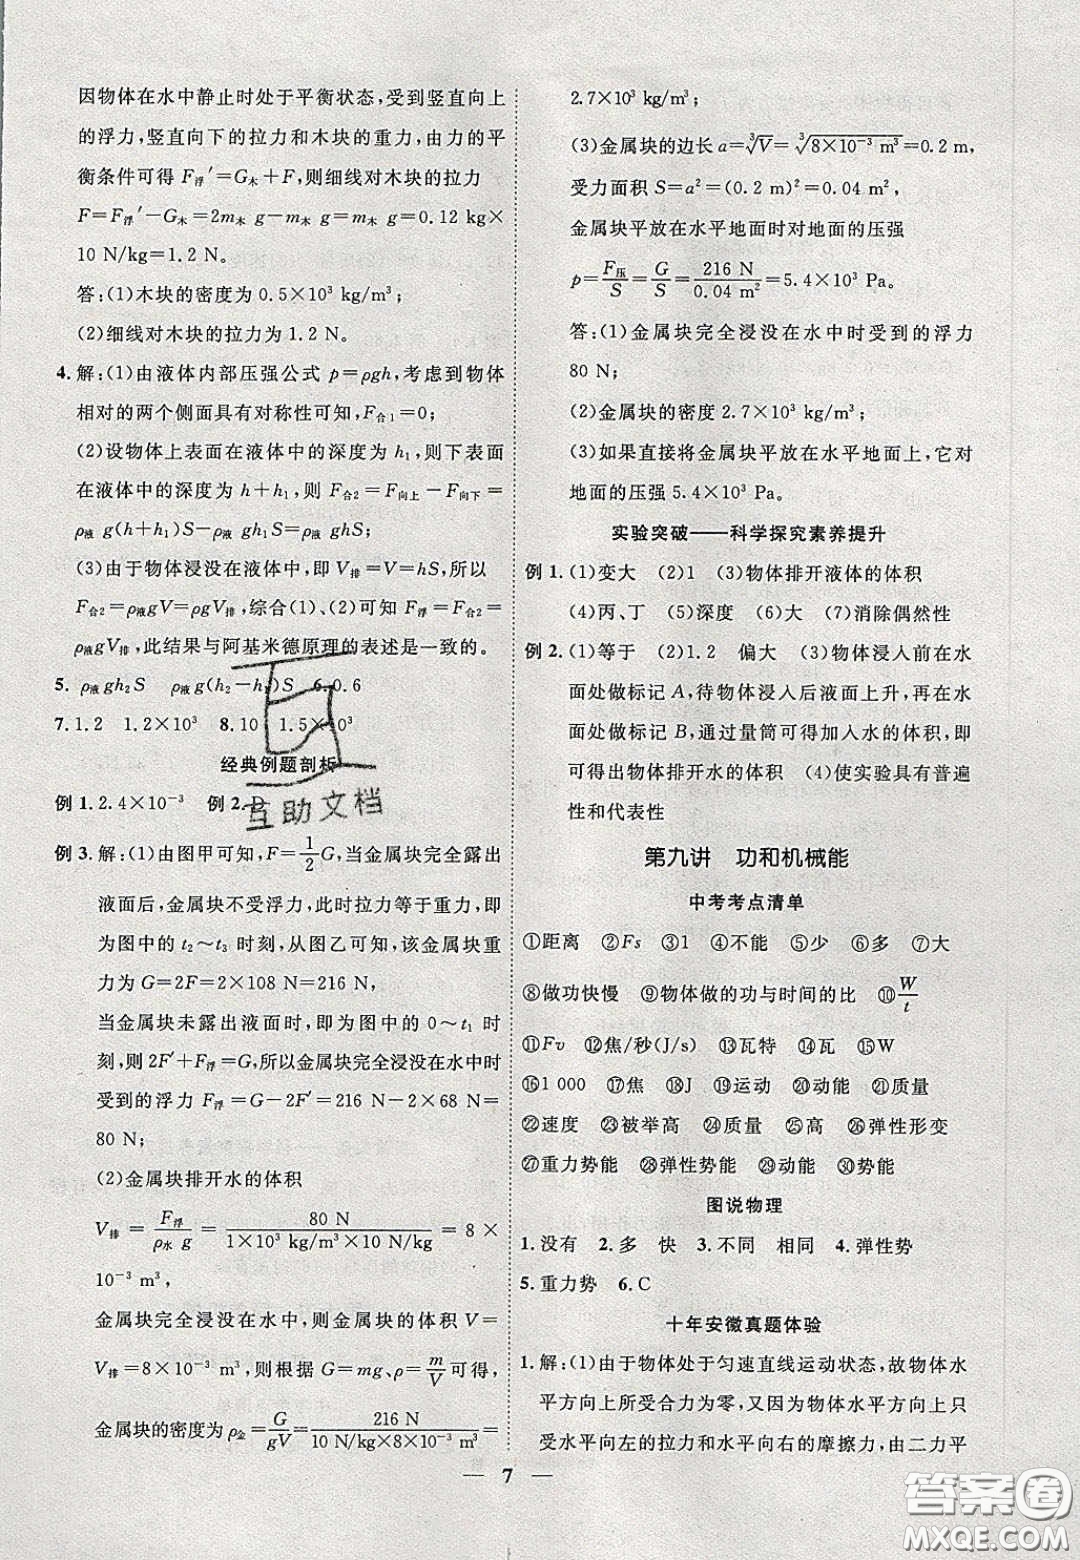 因物体在水中静止时处于平衡状态,受到竖直向上
的浮力,竖直向下的拉力和木块的重力,由力的平
衡条件可得 F浮′=G木+F,则细线对木块的拉力
F=F浮′-G木=2m木 g-m木 g=m木 g=0.12 kg×
10 N/kg=1.2 N。
答:(1)木块的密度为 0.5×10³ kg/m³;
(2)细线对木块的拉力为 1.2 N。
4.解:(1)由液体内部压强公式 p=ρgh,考虑到物体
相对的两个侧面具有对称性可知,F合1=0;
(2)设物体上表面在液体中的深度为 h₁,则下表面
在液体中的深度为 h+h₁,则 F合2=F向上-F向下=
ρ液 g(h+h₁)S-ρ液 gh₁S=ρ液 ghS;
(3)由于物体浸没在液体中,即 V排=V=hS,所以
F合2=ρ液gV=ρgV排,综合(1)、(2)可知 F浮=F合2=
ρ液gV排,此结果与阿基米德原理的表述是一致的。
5. ρ液 gh₂S ρ液 g(h₂-h₁)S 6. 0.6
7. 1.2 1.2×10³ 8. 10 1.5×10³
经典例题剖析
例 1. 2.4×10⁻³ 例 2. D
例 3. 解:(1)由图甲可知,F=1/2G,当金属块完全露出
液面后,金属块不受浮力,此时拉力等于重力,即
为图中的 t₂~t₃ 时刻,从图乙可知,该金属块重
力为 G=2F=2×108 N=216 N,
当金属块未露出液面时,即为图中的 0~t₁ 时
刻,则 2F′+F浮=G,所以金属块完全浸没在水中时
受到的浮力 F浮=G-2F′=216 N-2×68 N=
80 N;
(2)金属块排开水的体积
V排=F浮/ρ水 g=80 N/1×10³ kg/m³×10 N/kg=8×
10⁻³ m³,
金属块完全浸没在水中,所以金属块的体积 V=
V排=8×10⁻³ m³,则根据 G=mg、ρ=m/V可得,
金属块的密度为 ρ金=G/gV=216 N/10 N/kg×8×10⁻³ m³=
2.7×10³ kg/m³;
(3)金属块的边长 a=∛V=∛8×10⁻³ m³=0.2 m,
受力面积 S=a²=(0.2 m)²=0.04 m²,
金属块平放在水平地面时对地面的压强
p=F压/S=G/S=216 N/0.04 m²=5.4×10³ Pa。
答:(1)金属块完全浸没在水中时受到的浮力
80 N;
(2)金属块的密度 2.7×10³ kg/m³;
(3)如果直接将金属块平放在水平地面上,它对
地面的压强 5.4×10³ Pa。
实验突破——科学探究素养提升
例 1. (1)变大 (2)1 (3)物体排开液体的体积
(4)丙、丁 (5)深度 (6)大 (7)消除偶然性
例 2. (1)等于 (2)1.2 偏大 (3)物体浸入前在水
面处做标记 A,待物体浸入后液面上升,再在水
面处做标记 B,通过量筒可得加入水的体积,即
可得出物体排开水的体积 (4)使实验具有普遍
性和代表性
第九讲 功和机械能
中考考点清单
①距离 ②Fs ③1 ④不能 ⑤少 ⑥多 ⑦大
⑧做功快慢 ⑨物体做的功与时间的比 ⑩W/t
⑪Fv ⑫焦/秒(J/s) ⑬瓦特 ⑭瓦 ⑮W
⑯1 000 ⑰焦 ⑱J ⑲运动 ⑳动能 ㉑质量
㉒速度 ㉓被举高 ㉔质量 ㉕高 ㉖弹性形变
㉗重力势能 ㉘弹性势能 ㉙动能 ㉚势能
图说物理
1. 没有 2. 多 快 3. 不同 相同 4. 弹性势
5. 重力势 6. C
十年安徽真题体验
1. 解:(1)由于物体处于匀速直线运动状态,故物体水
平方向上所受合力为零,又因为物体水平方向上只
受水平向左的拉力和水平向右的摩擦力,由二力平
7
互助文档
答案圈
MXQE.COM